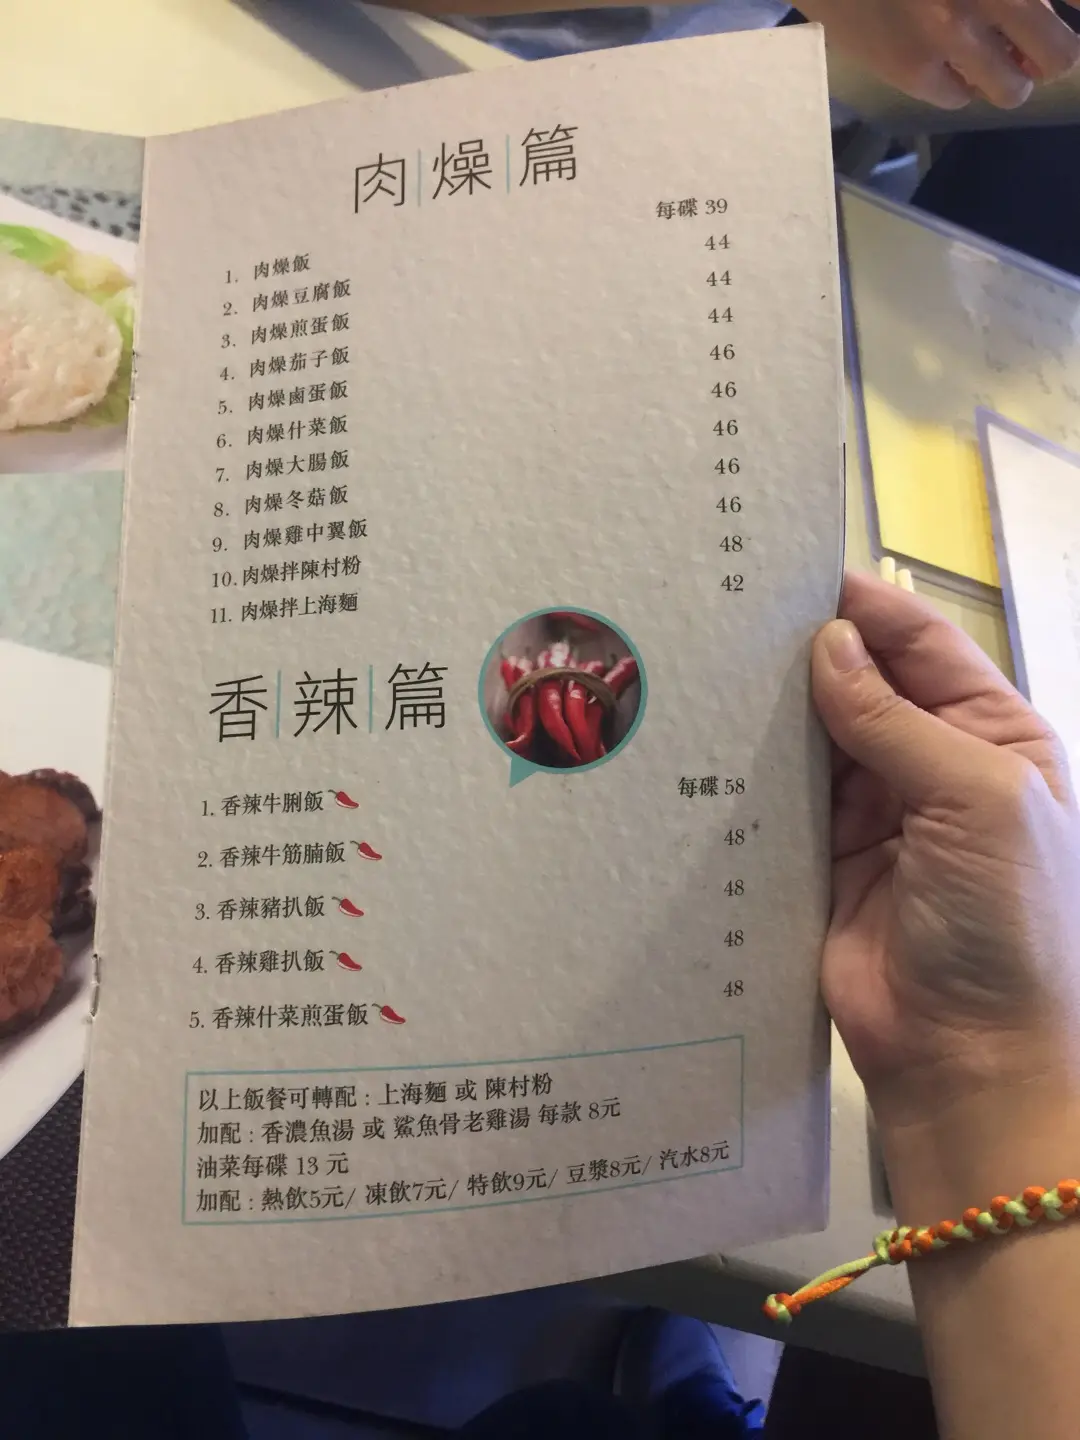 肉燥篇
1. 肉燥飯 每碟 39
2. 肉燥豆腐飯 44
3. 肉燥煎蛋飯 44
4. 肉燥茄子飯 44
5. 肉燥鹵蛋飯 46
6. 肉燥什菜飯 46
7. 肉燥大腸飯 46
8. 肉燥冬菇飯 46
9. 肉燥雞中翼飯 46
10. 肉燥拌陳村粉 48
11. 肉燥拌上海麵 42
香辣篇
1. 香辣牛脷飯 每碟 58
2. 香辣牛筋腩飯 48
3. 香辣豬扒飯 48
4. 香辣雞扒飯 48
5. 香辣什菜煎蛋飯 48
以上飯餐可轉配 : 上海麵 或 陳村粉
加配 : 香濃魚湯 或 鯊魚骨老雞湯 每款 8元
油菜每碟 13 元
加配 : 熱飲5元/ 凍飲7元/ 特飲9元/ 豆漿8元/ 汽水8元